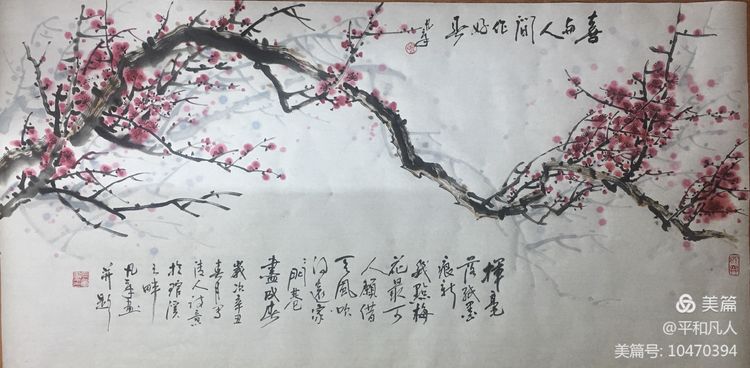 喜与人间作好春
揮毫
落紙墨
痕新
幾點梅
花最可
人願借
天風吹
得遠家
々門巷
盡成春
歲次辛丑
春月写
清人诗意
於溪
之畔
画
并题
美篇
@平和凡人
美篇号: 10470394